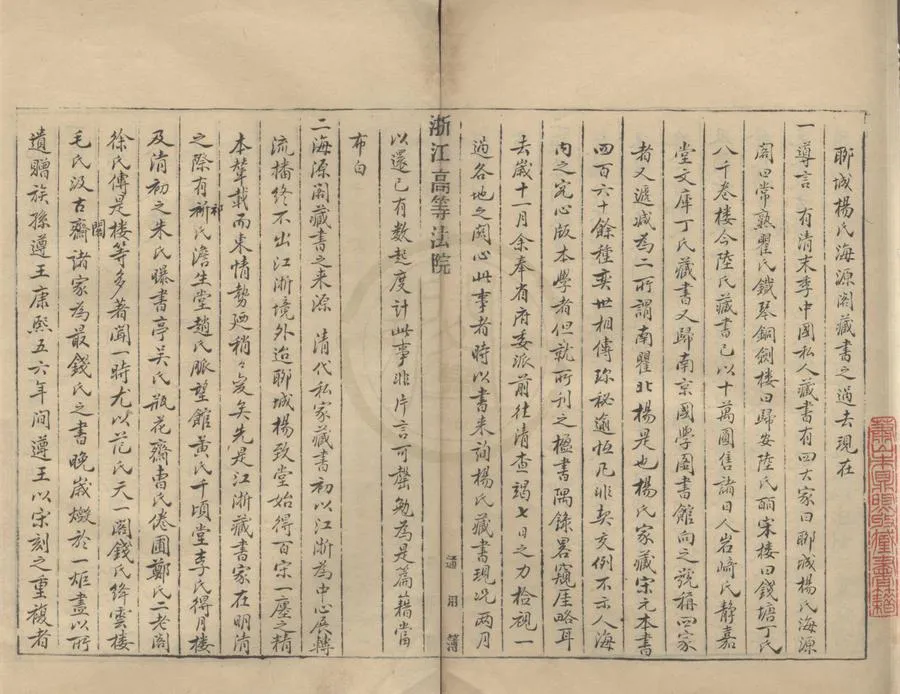 聊城楊氏海源閣藏書之過去現在
一導言　有清末季中國私人藏書有四大家曰聊城楊氏海源
閣曰常熟瞿氏鐵琴銅劍樓曰歸安陸氏皕宋樓曰錢塘丁氏
八千卷樓今陸氏藏書已以十萬圓售諸日人岩崎氏靜嘉
堂文庫丁氏藏書又歸南京國學圖書館向之號稱四家
者又遞減為二所謂南瞿北楊是也楊氏家藏宋元本書
四百六十餘種奕世相傳珍秘逾恆凡非契交例不示人海
內之究心版本學者但就所刊之楹書隅錄畧窺厓略耳
去歲十一月余奉省府委派前往清查竭七日之力檢視一
過各地之關心此事者時以書來詢楊氏藏書現況兩月
浙江高等法院
通用簿
以還已有數起度計此事非片言可罄勉為是篇藉當
布白
二海源閣藏書之來源　清代私家藏書初以江浙為中心展轉
流播終不出江浙境外迨聊城楊致堂始得百宋一廛之精
本輦載而東情勢廼稍々變矣先是江浙藏書家在明清
之際有祁氏澹生堂趙氏脈望館黃氏千頃堂李氏得月樓
及清初之朱氏曝書亭吳氏瓶花齋曹氏倦圃鄭氏二老閣
徐氏傳是樓等多著聞一時尤以范氏天一閣錢氏絳雲樓
毛氏汲古閣諸家為最錢氏之書晚歲燬於一炬盡以所
遺贈族孫遵王康熙五六年間遵王以宋刻之重複者